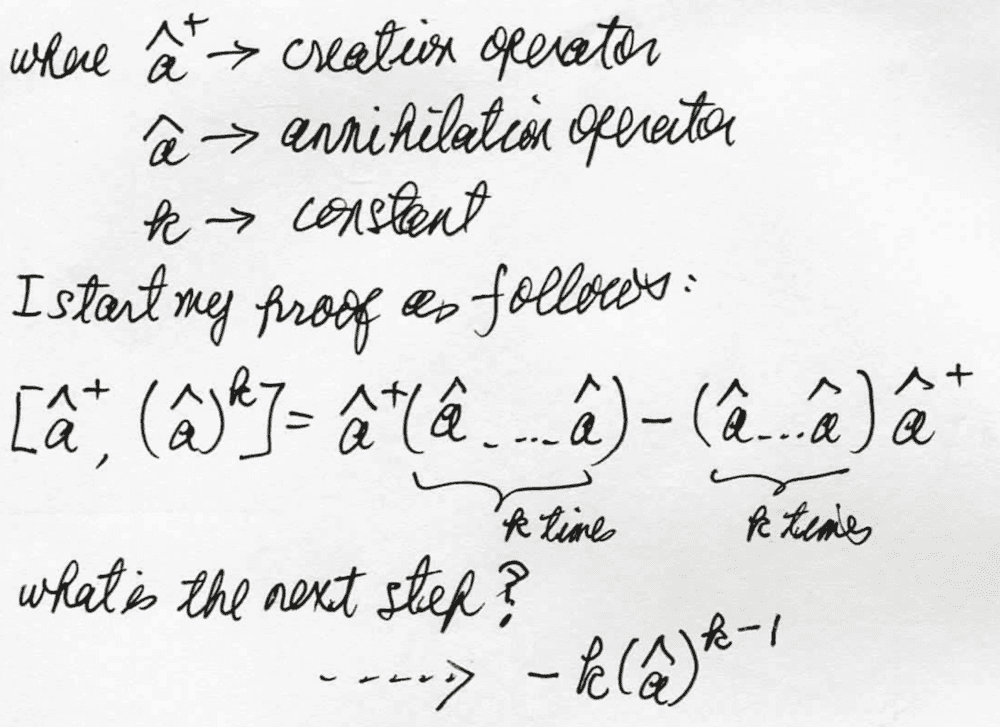 where â⁺ → creation operator
â → annihilation operator
k → constant
I start my proof as follows:
[â⁺, (â)ᵏ] = â⁺(â ---- â) - (â --- â) â⁺
k times k times
what is the next step?
-----> - k(â)ᵏ⁻¹